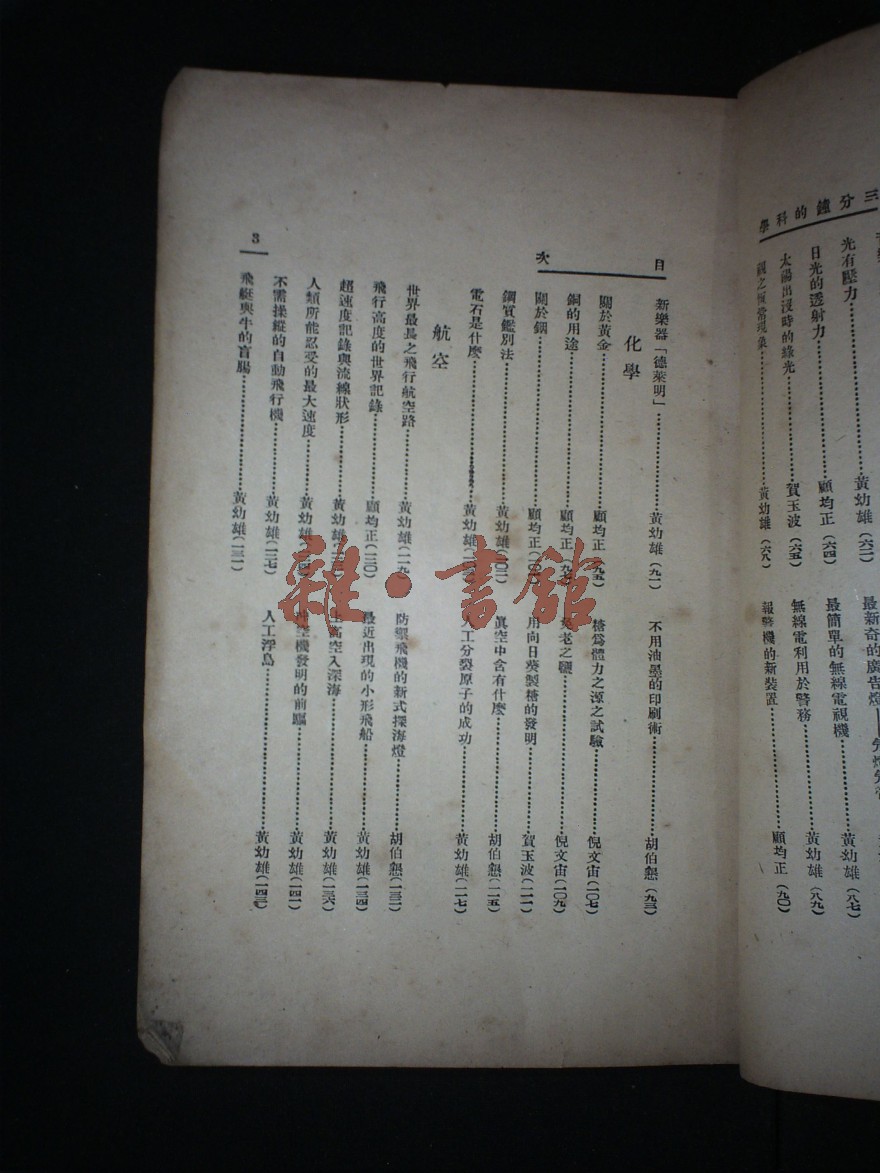 三分鐘的科學
光有壓力……黃幼雄(六二)
日光的透射力……顧均正(六四)
太陽出沒時的綠光……賀玉波(六五)
黃幼雄(六八)
最新奇的廣告燈
最簡單的無線電視機……黃幼雄(八七)
無線電利用於警務……黃幼雄(八九)
報警機的新裝置……顧均正(九〇)
目次
新樂器「德萊明」……黃幼雄(九一)
不用油墨的印刷術……胡伯懇(九三)
化學
關於黃金……顧均正(九五)
銅的用途……顧均正
關於鋼……顧均正
鋼質鑑別法……黃幼雄
電石是什麼……黃幼雄
糖為體力之源之試驗……倪文宙(一〇七)
老之鹽……倪文宙(一〇九)
用向日葵製糖的發明……賀玉波(一一一)
真空中含有什麼……胡伯懇(一一五)
人工分裂原子的成功……黃幼雄(一一七)
航空
世界最長之飛行航空路……黃幼雄(一一九)
飛行高度的世界記錄……顧均正(一二〇)
超速度記錄與流線狀形……黃幼雄
人類所能忍受的最大速度……黃幼雄
不需操縱的自動飛行機……黃幼雄(一二七)
飛艇與牛的盲腸……黃幼雄(一三一)
防禦飛機的新式探海燈……胡伯懇(一三二)
最近出現的小形飛船……黃幼雄(一三四)
上高空入深海……黃幼雄(一三六)
空機發明的前驅……黃幼雄(一四一)
人工浮島……黃幼雄(一四三)
3
雜·書館